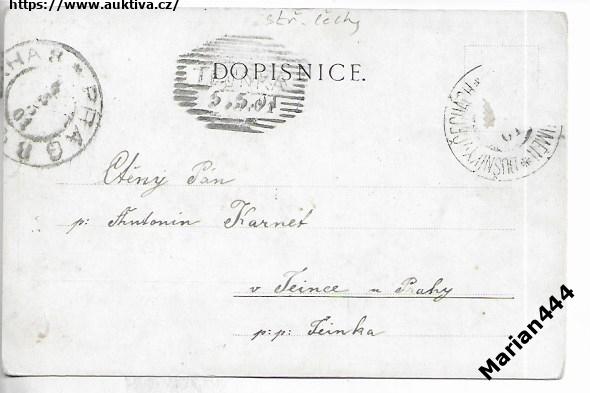 https://www.auktiva.cz/
stř. Čechy
DOPISNICE.
5.5.01
PRAG
Ctěný Pán
p: Antonin Karnét
v Jeince u Prahy
p:p: Jeinka
Marian444